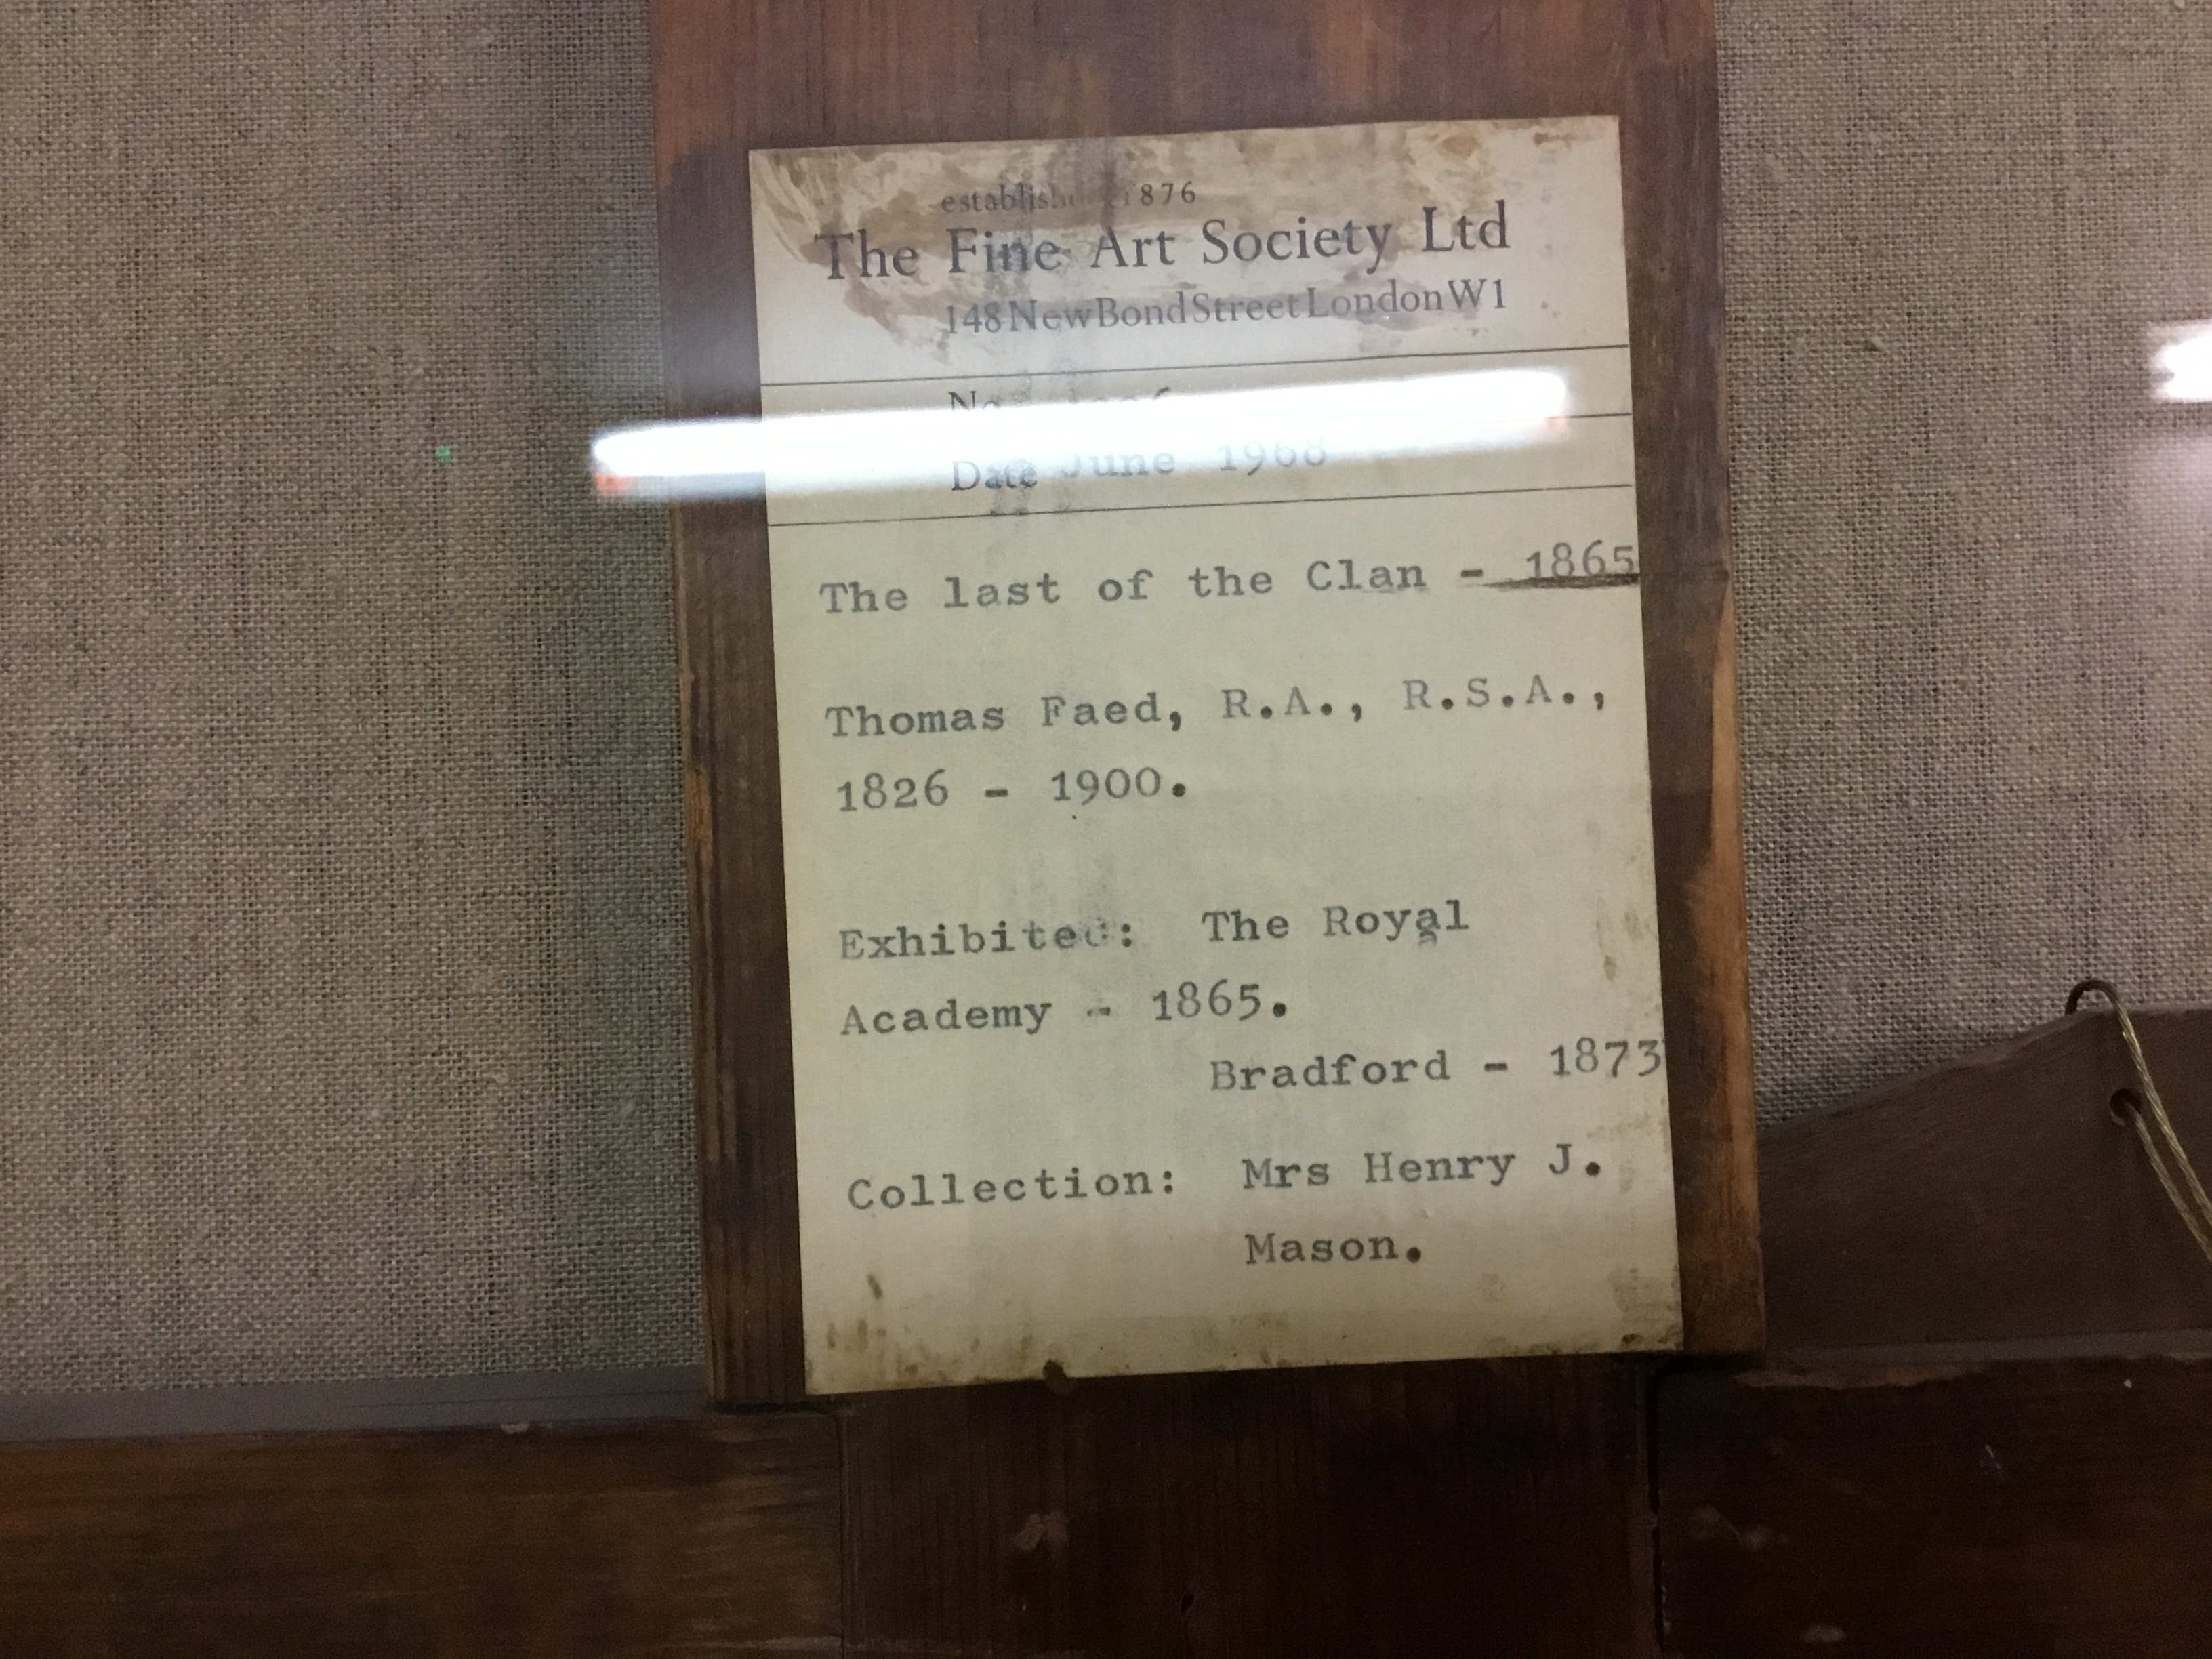 established 1876
The Fine Art Society Ltd
148 New Bond Street London W1
No
Date June 1968
The last of the Clan - 1865
Thomas Faed, R.A., R.S.A.,
1826 - 1900.
Exhibited: The Royal
Academy - 1865.
Bradford - 1873
Collection: Mrs Henry J.
Mason.